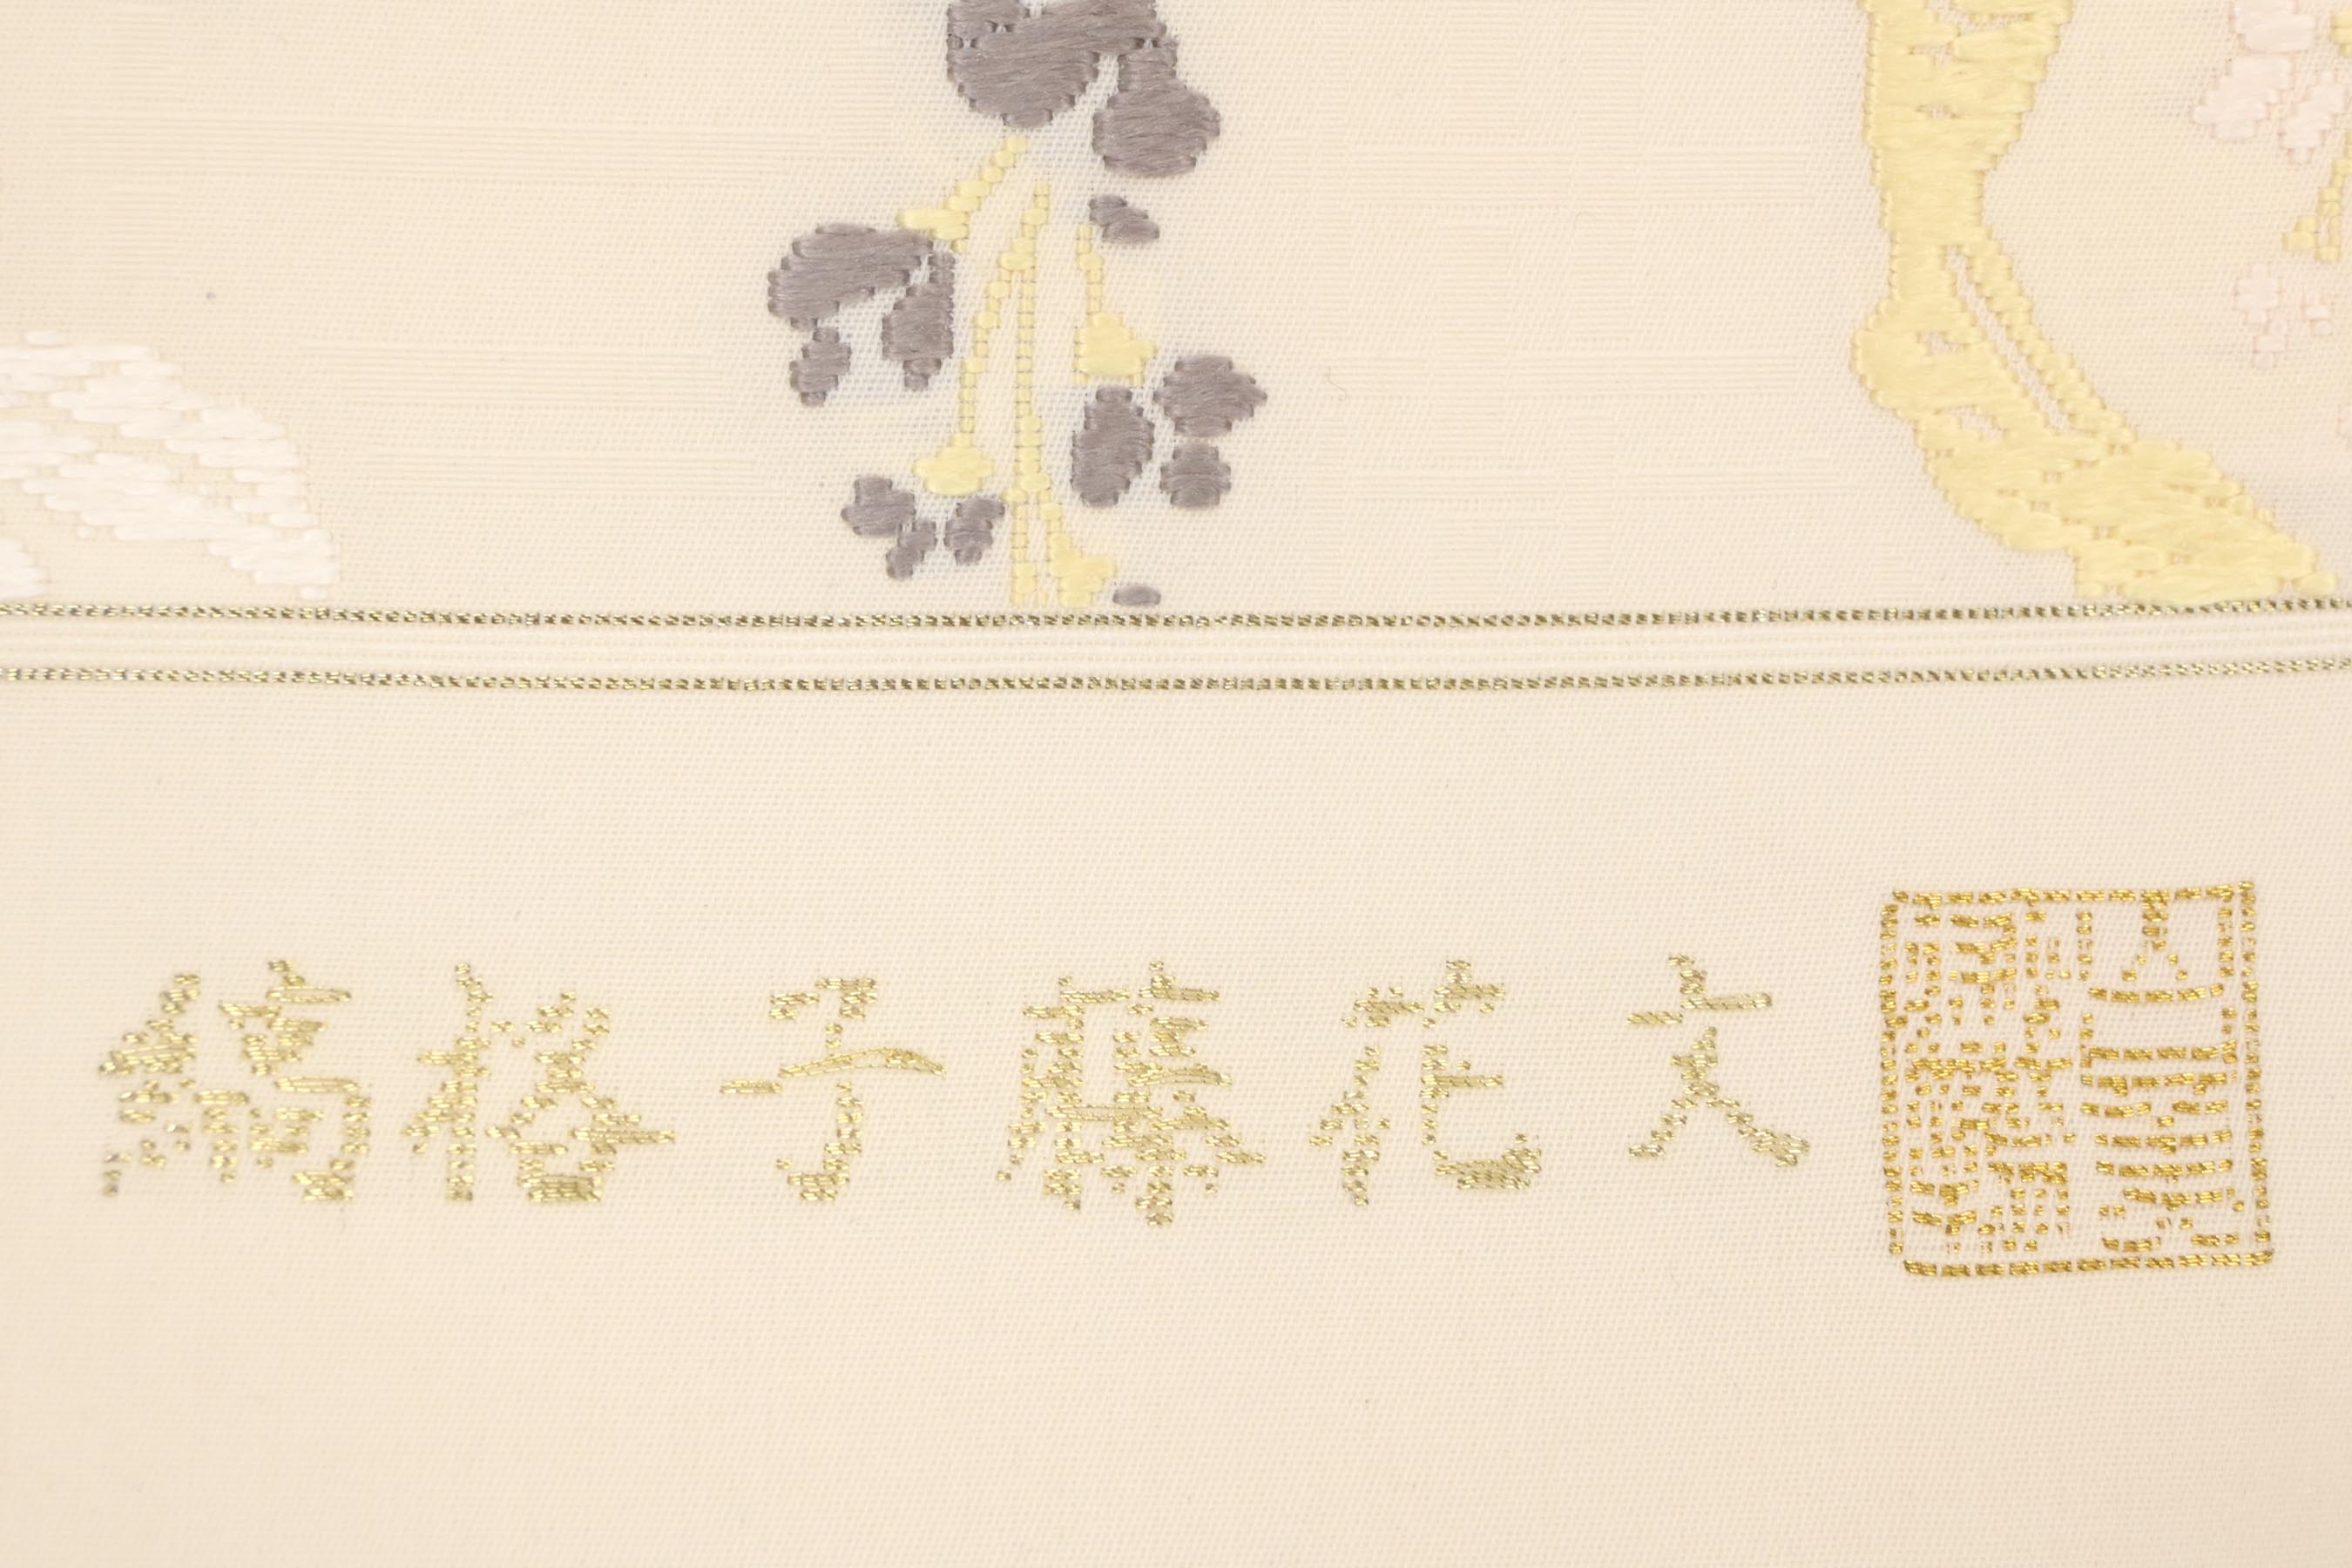 縞格子藤花文